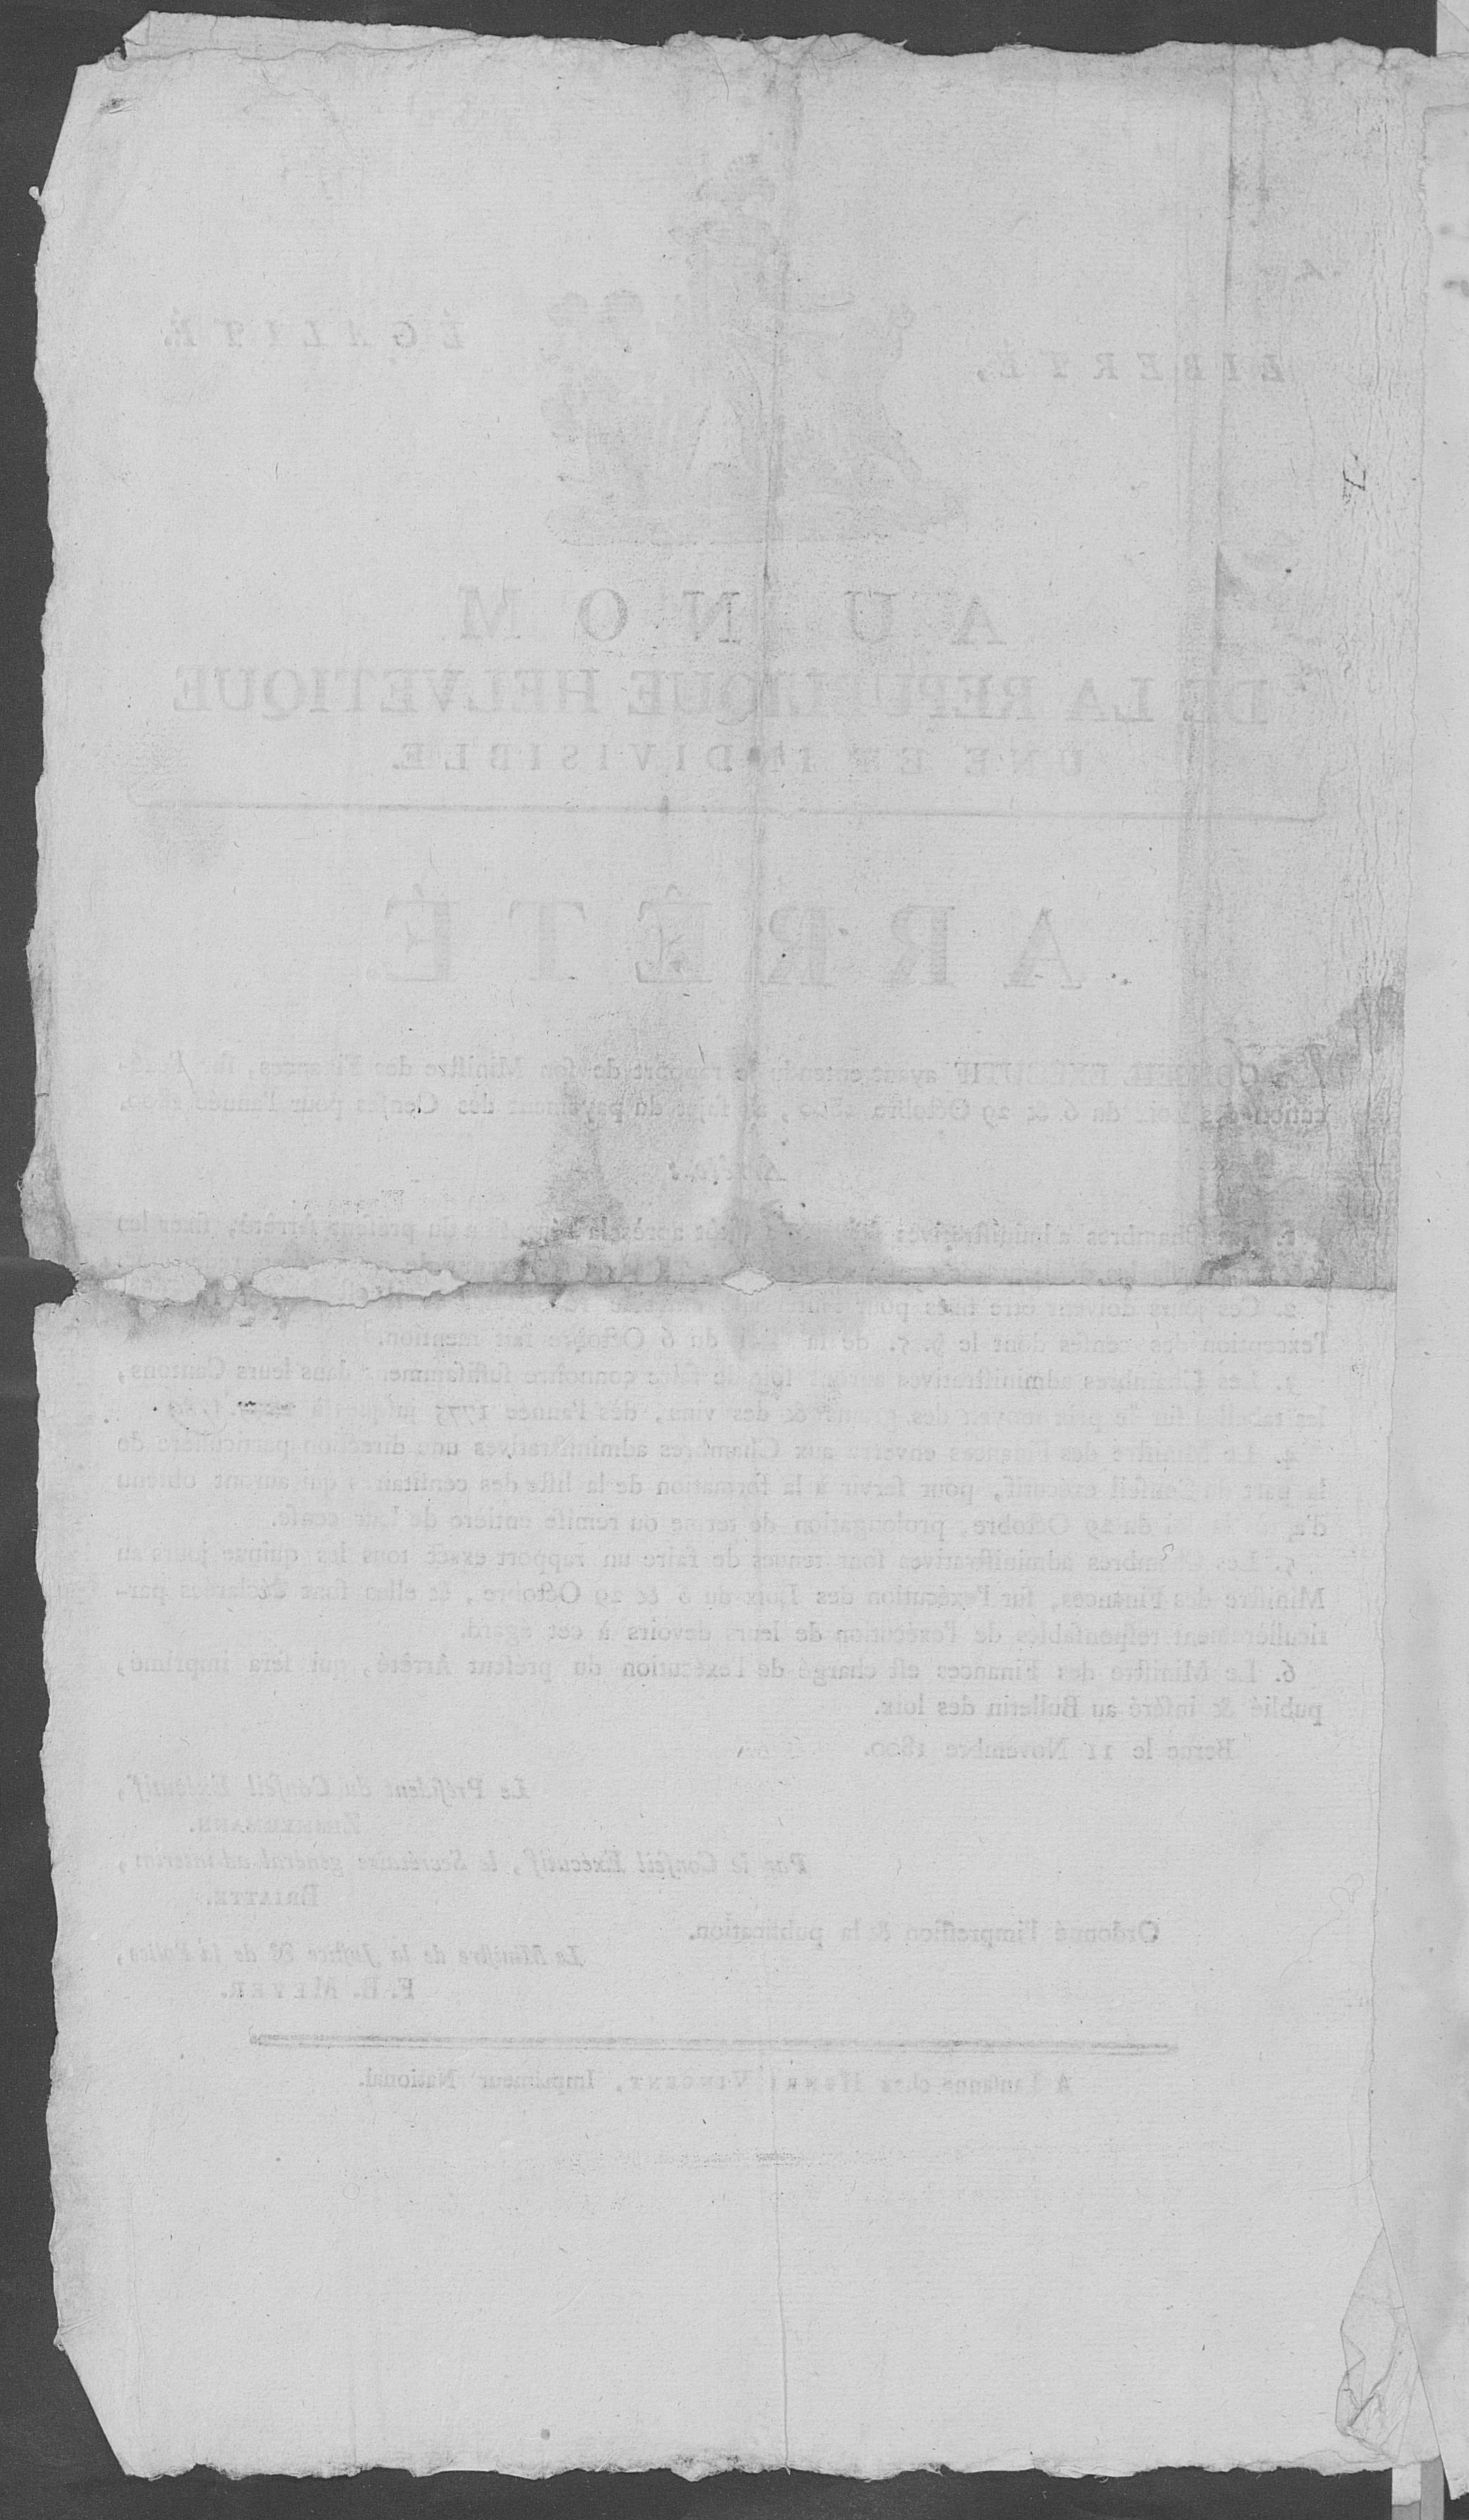 LIBERTÉ,
ÉGALITÉ.
AU NOM
DE LA REPUBLIQUE HELVETIQUE
UNE ET INDIVISIBLE.
ARRÊTÉ.
CONSEIL EXÉCUTIF ayant entendu le rapport de son Ministre des Finances, sur l'exé-
cution des Loix du 6 & 29 Octobre 1800, au sujet du payement des Censes pour l'année 1800.
Arrête:
1. Les Chambres administratives après la du présent Arrêté, fixer les
2. Ces jours doivent être fixés pour
l'exception des censes dont le §. 5. de la Loi du 6 Octobre fait mention.
3. Les Chambres administratives auront soin de faire connoître suffisamment dans leurs Cantons,
les tabelles sur le prix moyen des graines & des vins, dès l'année 1775 jusques à
4. Le Ministre des Finances enverra aux Chambres administratives une direction particulière de
la part du Conseil exécutif, pour servir à la formation de la liste des censitaires qui auront obtenu
d'après la loi du 29 Octobre, prolongation de terme ou remise entière de leur cense.
5. Les Chambres administratives sont tenues de faire un rapport exact tous les quinze jours au
Ministre des Finances, sur l'exécution des Loix du 6 & 29 Octobre, & elles sont déclarées par-
ticulièrement responsables de l'exécution de leurs devoirs à cet égard.
6. Le Ministre des Finances est chargé de l'exécution du présent Arrêté, qui sera imprimé,
publié & inséré au Bulletin des loix.
Berne le 11 Novembre 1800.
Le Président du Conseil Exécutif,
ZIMMERMANN.
Par le Conseil Exécutif, le Secrétaire général ad-interim,
BRIATTE.
Ordonné l'impression & la publication.
Le Ministre de la Justice & de la Police,
F. B. MEYER.
A Lausanne chez HENRI VINCENT, Imprimeur National.